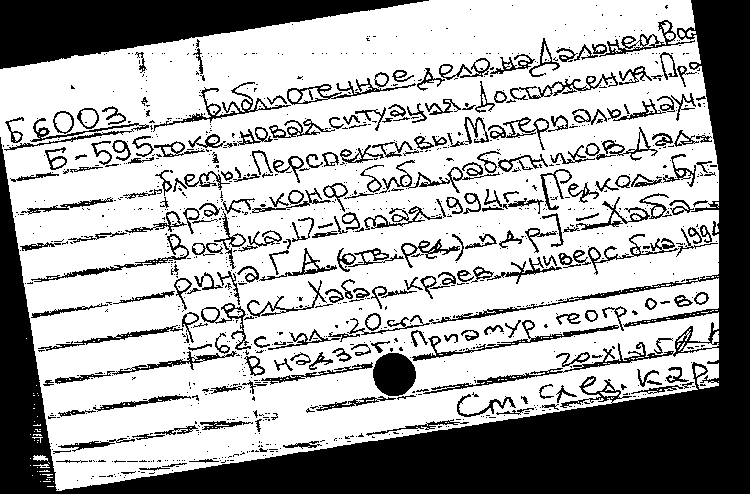 Библиотечное дело на Дальнем Вос-
Б6003
Б-595 токе: новая ситуация. Достижения. Про
блемы. Перспективы: Материалы науч.-
практ. конф. библ. работников Дал.
Востока, 17-19 мая 1994 г.; [Редкол.: Бут-
рина Г А (отв. ред.) и др.] - Хаба-
ровск: Хабар. краев. универс. б-ка, 1994
-62 с.: ил.; 20 cm.
В надзаг.: Приамур. геогр. о-во
20-XI-95
См. след. кар-